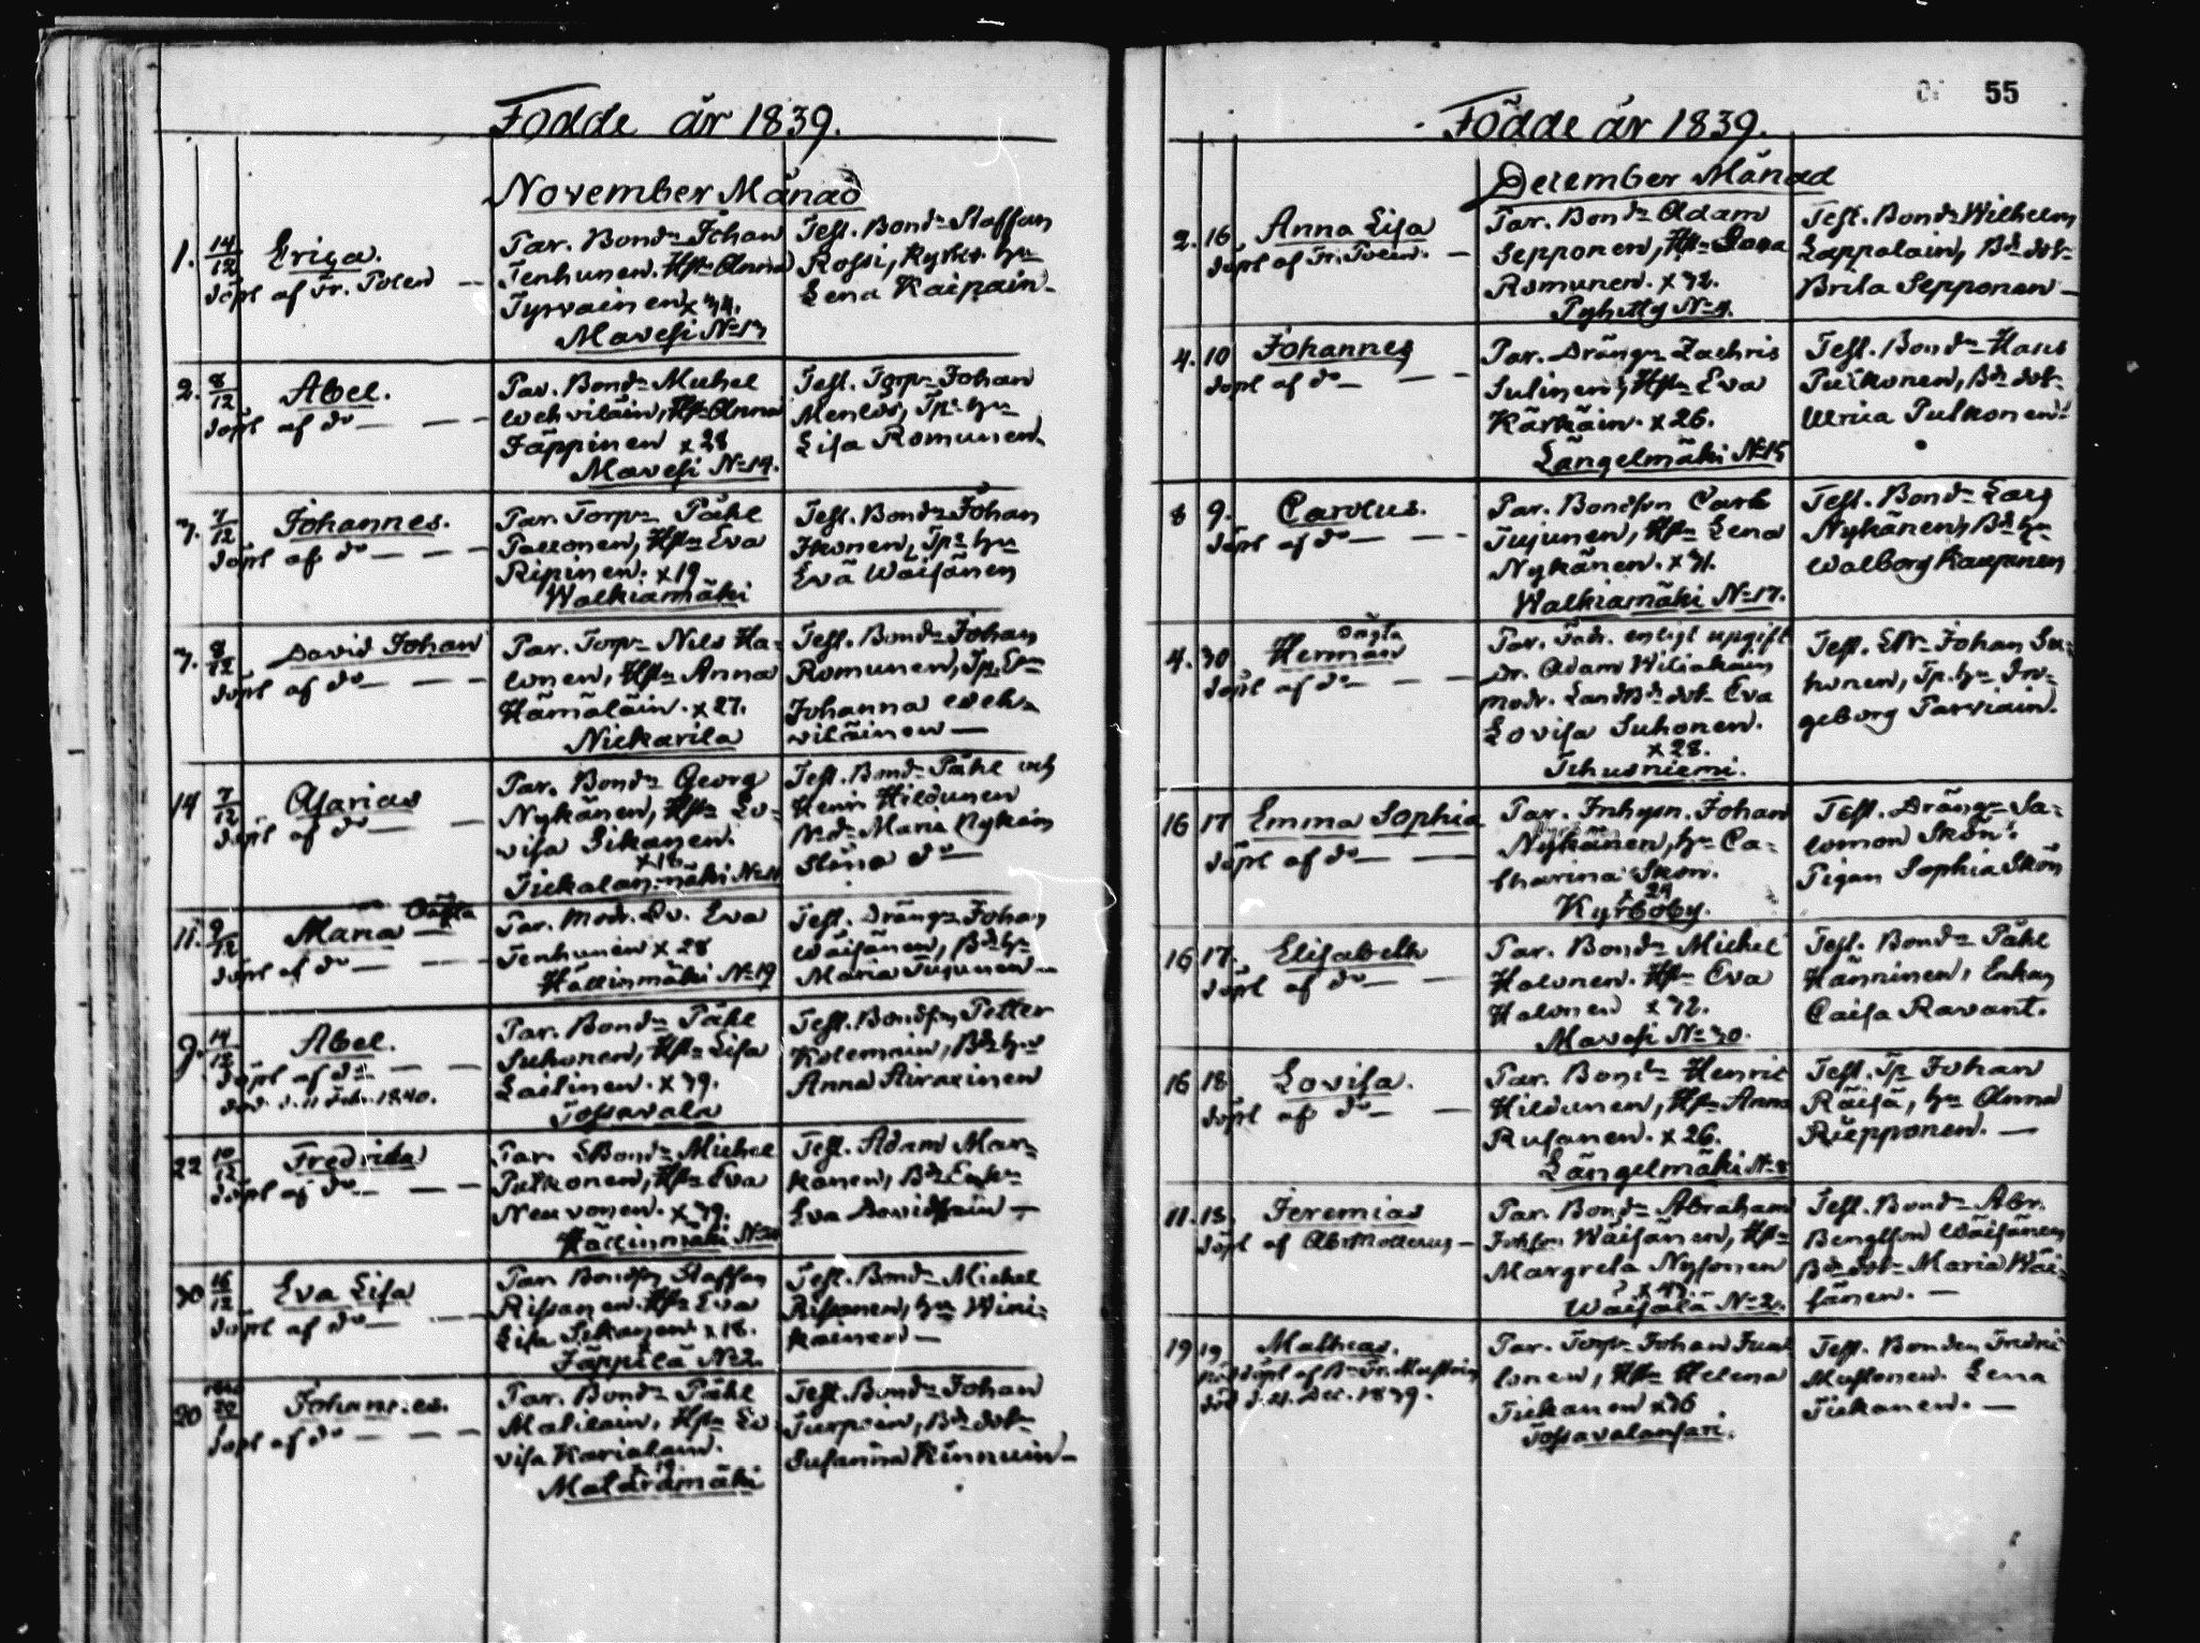 Födde år 1839.
November Månad
1. 14/12 Eriça.
döpt af Fr. Polén —
Par. Bond. Johan
Tenhunen. Hst. Anna
Tyrvainen x 34.
Mavesi No 13
Test. Bond. Staffan
Rossi, Kyrkv. hu
Lena Kaipain.
2. 8/12 Abel.
döpt af do — — —
Par. Bond. Michel
Wehviläin, Hst. Anna
Jäppinen x 28
Mavesi No 14.
Test. Torp. Johan
Menlös, Tp. hu
Lisa Romunen.
7. 7/12 Johannes.
döpt af do — — —
Par. Torp. Påhl
Pallonen, Hst. Eva
Ripinen. x 19
Walkiamäki
Test. Bond. Johan
Ikonen, Tp. hu
Eva Wäisänen
7. 8/12 David Johan
döpt af do — — —
Par. Torp. Nils Ha-
lonen, Hst. Anna
Hämäläin. x 27.
Niskarila
Test. Bond. Johan
Romunen, Tp. E
Johanna Weh-
viläinen —
14 7/12 Asarias
döpt af do — —
Par. Bond. Georg
Nykänen, Hst. Lo-
visa Sikanen.
x 18.
Tickalanmäki No 11
Test. Bond. Påhl och
Henr. Hildunen
Maria Nykäin
Stina do —
11. 9/12 Maria Oägta
döpt af do — — —
Par. Modr. Eva
Tenhunen x 28
Hällinmäki No 19
Test. Dräng. Johan
Wäisänen, Bd. hu
Maria Tujunen —
9. 14/12 Abel.
döpt af do — —
död d. 11 Febr. 1840.
Par. Bond. Påhl
Suhonen, Hst. Lisa
Laitinen. x 39.
Tossavala
Test. Bondson Petter
Kolemain, Bd. hu
Anna Airaxinen
22 10/12 Fredrika
döpt af do — — —
Par. Bond. Michel
Putkonen, Hst. Eva
Neuvonen. x 39.
Hällinmäki No 20
Test. Adam Mar-
kanen, Bd. Enk.
Eva Davidsain —
30 16/12 Eva Lisa
döpt af do — — —
Par. Bondson Staffan
Rissanen. Hst. Eva
Lisa Sikanen x 18.
Jäppilä No 2.
Test. Bond. Michel
Rissanen, hu Wini-
kainen —
20 Johannes.
döpt af do — — —
Par. Bond. Påhl
Matilain, Hst. Lo-
visa Karialain.
x 19.
Matarämäki
Test. Bond. Johan
Turpein, Bd. dot.
Susanna Kinnuin —
55
Födde år 1839.
December Månad
2. 16 Anna Lisa
döpt af Fr. Polén. —
Par. Bond. Adam
Sepponen, Hst.
Romunen. x 32.
Pyhitty No 4.
Test. Bond. Wilhelm
Lappalain, Bd. dot.
Brita Sepponen —
4. 10 Johannes
döpt af do — — —
Par. Dräng. Zachris
Sulinen, Hst. Eva
Kärkäin. x 26.
Längelmäki No 15
Test. Bond. Hans
Pulkonen, Bd. dot.
Ulrica Pulkonen.
8 9. Carolus.
döpt af do — — —
Par. Bondson Carl
Tujunen, Hst. Lena
Nykänen. x 31.
Walkiamäki No 17.
Test. Bond. Lars
Nykänen, Bd. hu
Walborg Kauppinen
4. 30 Herman oägta
döpt af do — — —
Par. Fadr. enligt upgift
Dr. Adam Wiliakain
modr. Landbd. dot. Eva
Lovisa Suhonen.
x 28.
Tihusniemi.
Test. Johan Su-
honen, Tp. hu In-
geborg Parviain.
16 17 Emma Sophia
döpt af do — —
Par. Inhysn. Johan
Nykänen, hu Ca-
tharina Skön.
x 29
Kyrcoby.
Test. Dräng. Sa-
lomon Skön.
Pigan Sophia Skön
16 17. Elisabeth
döpt af do — —
Par. Bond. Michel
Halonen. Hst. Eva
Halonen x 32.
Mavesi No 30.
Test. Bond. Påhl
Hänninen, Enkan
Caisa Ravant.
16 18 Lovisa.
döpt af do — —
Par. Bond. Henric
Hildunen, Hst. Anna
Rusanen. x 26.
Längelmäki No 8
Test. Tp. Johan
Räisä, hu Anna
Riepponen. —
11. 18. Jeremias
döpt af Abr. Mollerus —
Par. Bond. Abraham
Johson Wäisänen, Hst.
Margreta Nysönen
x 43.
Waisalä No 2.
Test. Bond. Abr.
Bengtson Wäisänen
Bd. dot. Maria Wäi-
sänen. —
19 19 Mathias.
nöddöpt af
död d. 21. Dec. 1839.
Par. Torp. Johan
lonen, Hst. Helena
Tickanen x 36
Tossavalansari.
Test. Bonden Fredric
Mustonen. Lena
Tickanen. —